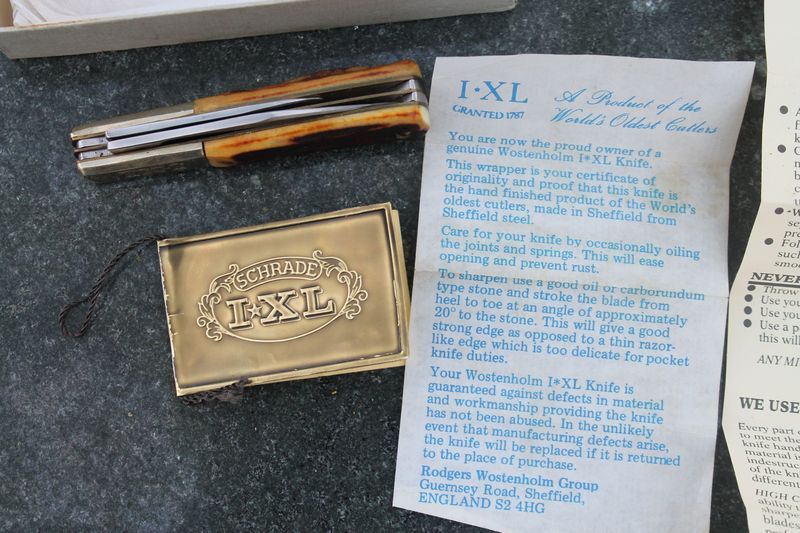 SCHRADE
I*XL
I·XL
GRANTED 1787
A Product of the
World's Oldest Cutlers
You are now the proud owner of a
genuine Wostenholm I*XL Knife.
This wrapper is your certificate of
originality and proof that this knife is
the hand finished product of the World's
oldest cutlers, made in Sheffield from
Sheffield steel.
Care for your knife by occasionally oiling
the joints and springs. This will ease
opening and prevent rust.
To sharpen use a good oil or carborundum
type stone and stroke the blade from
heel to toe at an angle of approximately
20° to the stone. This will give a good
strong edge as opposed to a thin razor-
like edge which is too delicate for pocket
knife duties.
Your Wostenholm I*XL Knife is
guaranteed against defects in material
and workmanship providing the knife
has not been abused. In the unlikely
event that manufacturing defects arise,
the knife will be replaced if it is returned
to the place of purchase.
Rodgers Wostenholm Group
Guernsey Road, Sheffield,
ENGLAND S2 4HG
NEVER
Throw
Use you
Use you
Use a p
this will
ANY MI
WE USE
Every part o
to meet the
knife hand
material is
indestruc
of the kn
different
HIGH C
ability t
sharpe
blades